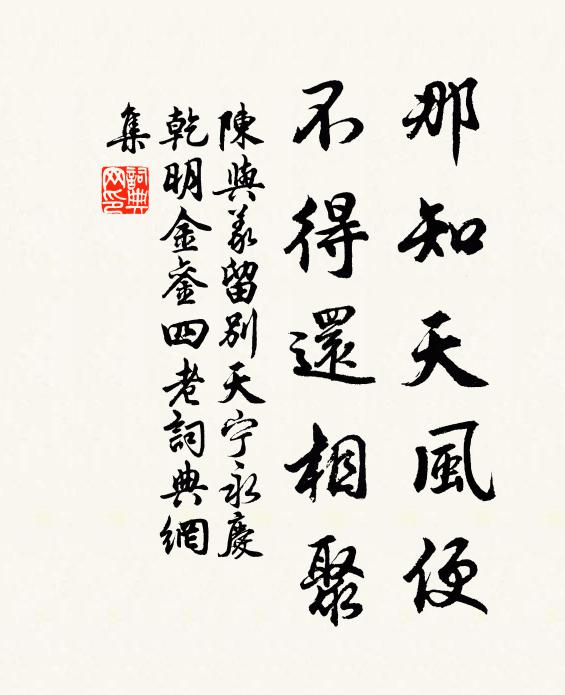 那知天風便
不得還相聚
陳與義留別天宁永慶
乾明金銮四老詞典網
集
詞典网印